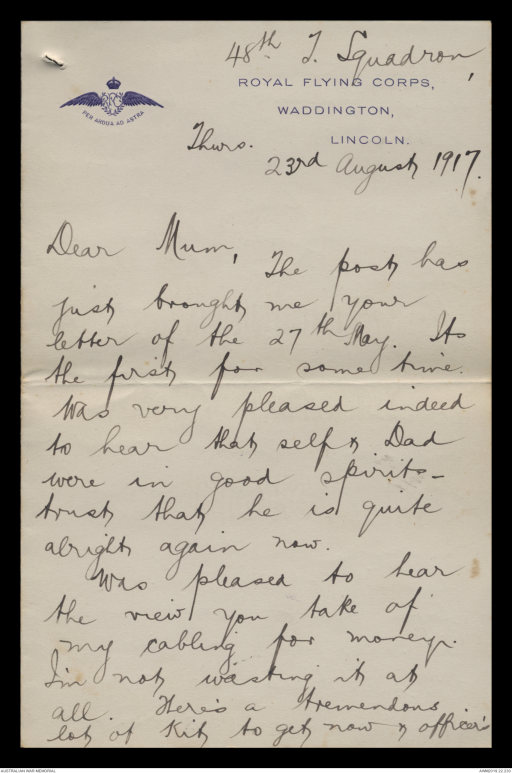 48th T. Squadron,
ROYAL FLYING CORPS,
WADDINGTON,
LINCOLN.
RFC
PER ARDUA AD ASTRA
Thurs.
23rd August 1917.
Dear Mum,
The post has
just brought me your
letter of the 27th May. Its
the first for some time.
Was very pleased indeed
to hear that self & Dad
were in good spirits -
trust that he is quite
alright again now.
Was pleased to hear
the view you take of
my cabling for money.
I'm not wasting it at
all. Here's a tremendous
lot of kit to get now & officer's
AUSTRALIAN WAR MEMORIAL